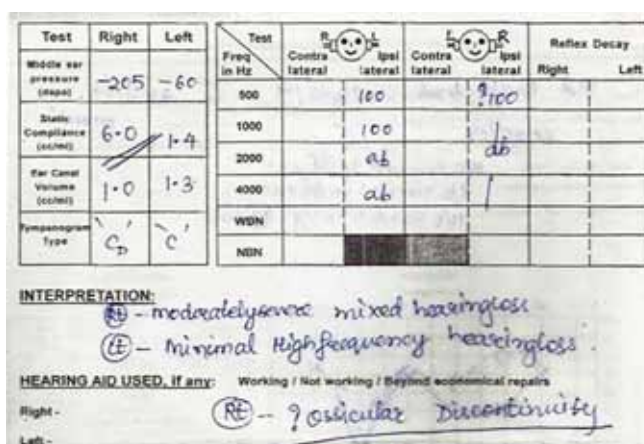 Test Right Left
Middle ear pressure (dapa) -205 -60
Static Compliance (cc/ml) 6.0 1.4
Ear Canal Volume (cc/ml) 1.0 1.3
Tympanogram Type 'CD' 'C'
Test R L L R Reflex Decay
Freq in Hz Contra lateral Ipsi lateral Contra lateral Ipsi lateral Right Left
500 100 ?100
1000 100
2000 ab ab
4000 ab
WBN
NBN
INTERPRETATION:
Rt - moderatelysevere mixed hearingloss
Lt - Minimal Highfrequency hearingloss.
HEARING AID USED, if any: Working / Not working / Beyond economical repairs
Right - Rt - ? ossicular Discontinuity
Left -